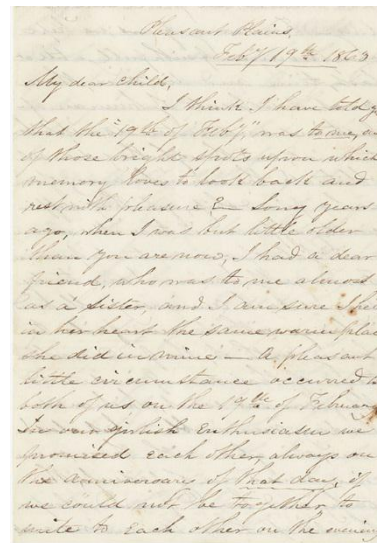 Pleasant Plains.
Feby 19th 1863
My dear child,
I think I have told
that the "19th of Feby" was to me,
of those bright spots upon which
memory loves to look back and
rest with pleasure & long years
ago, when I was but little older
than you are now, I had a dear
friend, who was to me almost
as a sister, and I am sure I
in her heart the same warm place
she did in mine — A pleasant
little circumstance occurred
both of us on the 19th of February
In our girlish Enthusiasm we
promised each other, always on
the anniversary of that day, if
we could not be together, to
write to each other on the evening